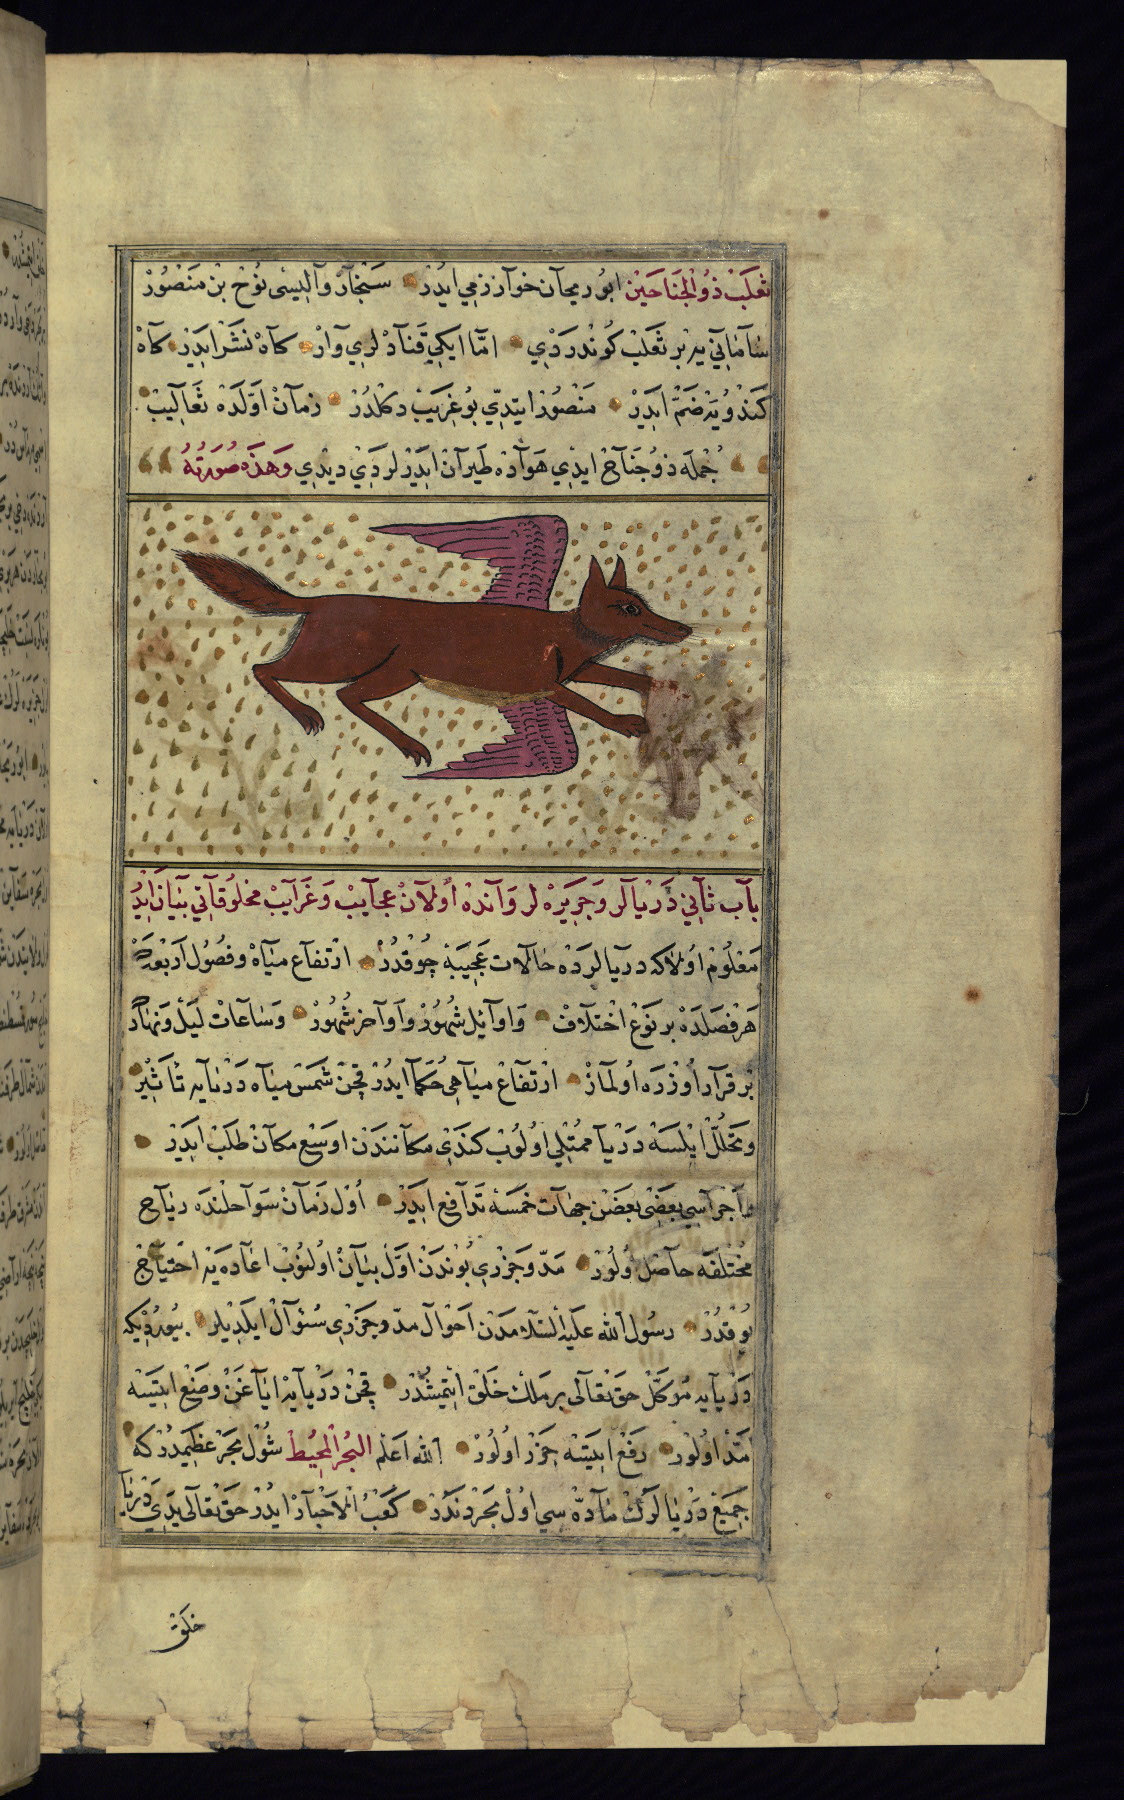 ثعلب ذو الجناحين ابو ريحان خوارزمي ايدر سنجار واليسى نوح بن منصور
ساماني يه بر ثعلب كوندردي اما ايكي قنادلري وار كاه نشر ايدر كاه
كندويه ضم ايدر منصور ايتدي بو غريب دكلدر زمان اولده ثعاليب
جمله ذو جناح ايدي هواده طيران ايدرلردي ديدي وهذه صورته
باب ثاني دريالر وجزيره لر وانده اولان عجايب وغرايب مخلوقاتي بيان ايدر
معلوم اولاكه دريالرده حالات عجيبه چوقدر ارتفاع مياه وفصول اربعه
هر فصلده بر نوع اختلاف واوايل شهور واواخر شهور وساعات ليل ونهار
بر قرار اوزره اولماز ارتفاع مياهي حكما ايدر قچن شمس مياه دريايه تأثير
وتحلل ايلسه دريا ممتلي اولوب كندي مكانندن اوسع مكان طلب ايدر
واجزاسي بعضي بعضن جهات خمسه تدافع ايدر اول زمان سواحلنده رياح
مختلفه حاصل اولور مد وجزري بوندن اول بيان اولنوب اعاده يه احتياج
يوقدر رسول الله عليه السلامدن احوال مد وجزري سئوال ايلديلر بيورديكه
دريايه موكل حق تعالى بر ملك خلق ايتمشدر قچن دريايه اياغن وضع ايتسه
مد اولور رفع ايتسه جزر اولور الله اعلم البحر المحيط شول بحر عظيمدركه
جميع دريالرك ماده سي اول بحردندر كعب الاحبار ايدر حق تعالى يدي دريا
خلق